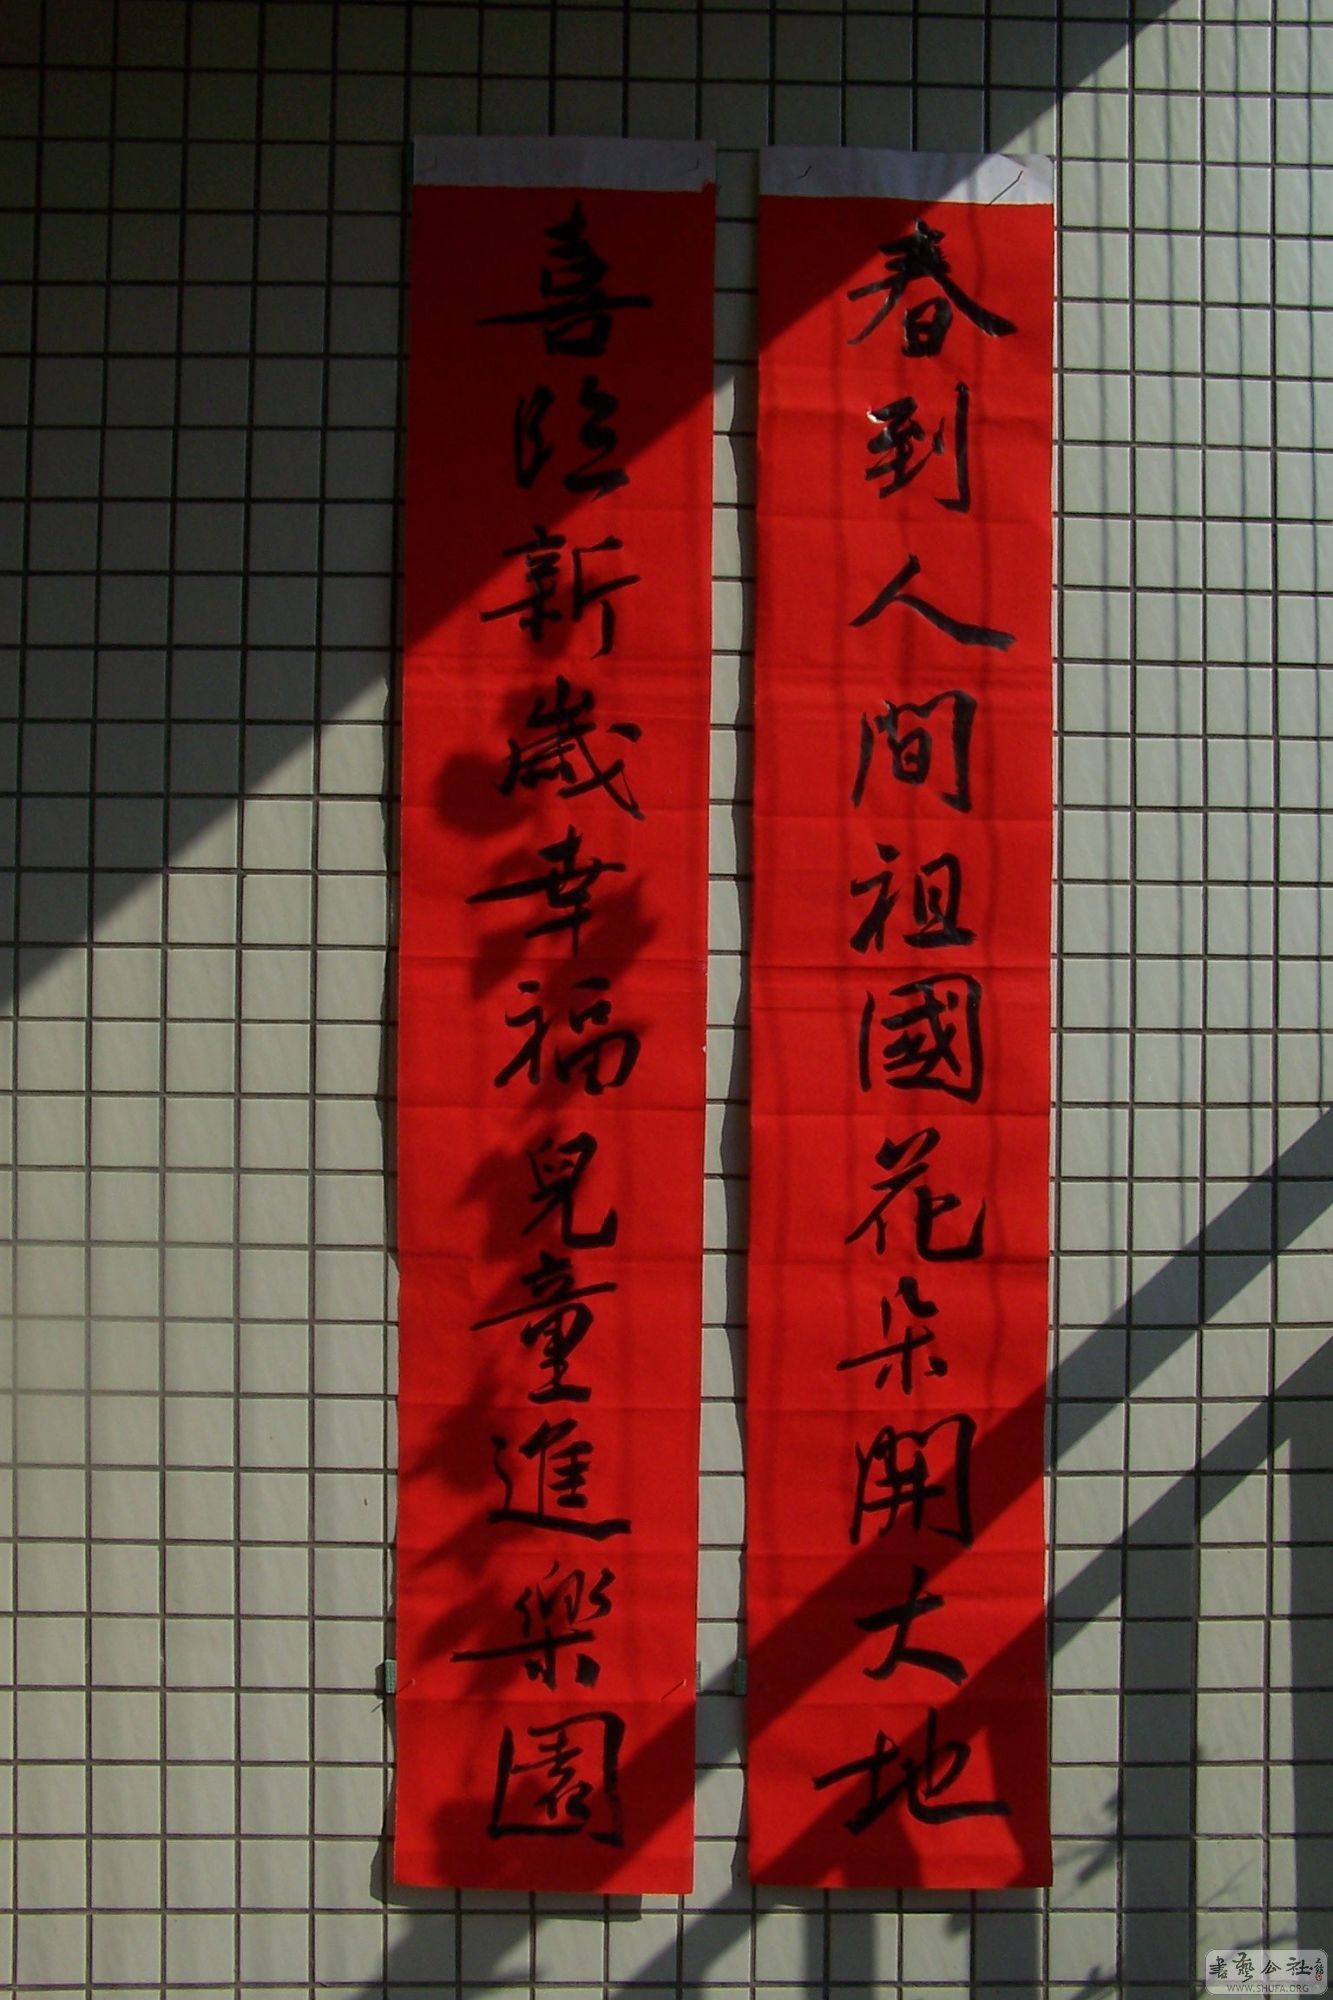 春到人間祖國花朵開大地
喜臨新歲幸福兒童進樂園
書藝公社
WWW.SHUFA.ORG